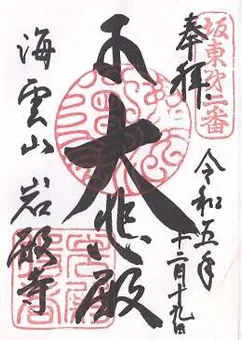 坂東第二番
奉拝
令和五年
十二月十九日
大悲殿
海雲山 岩殿寺